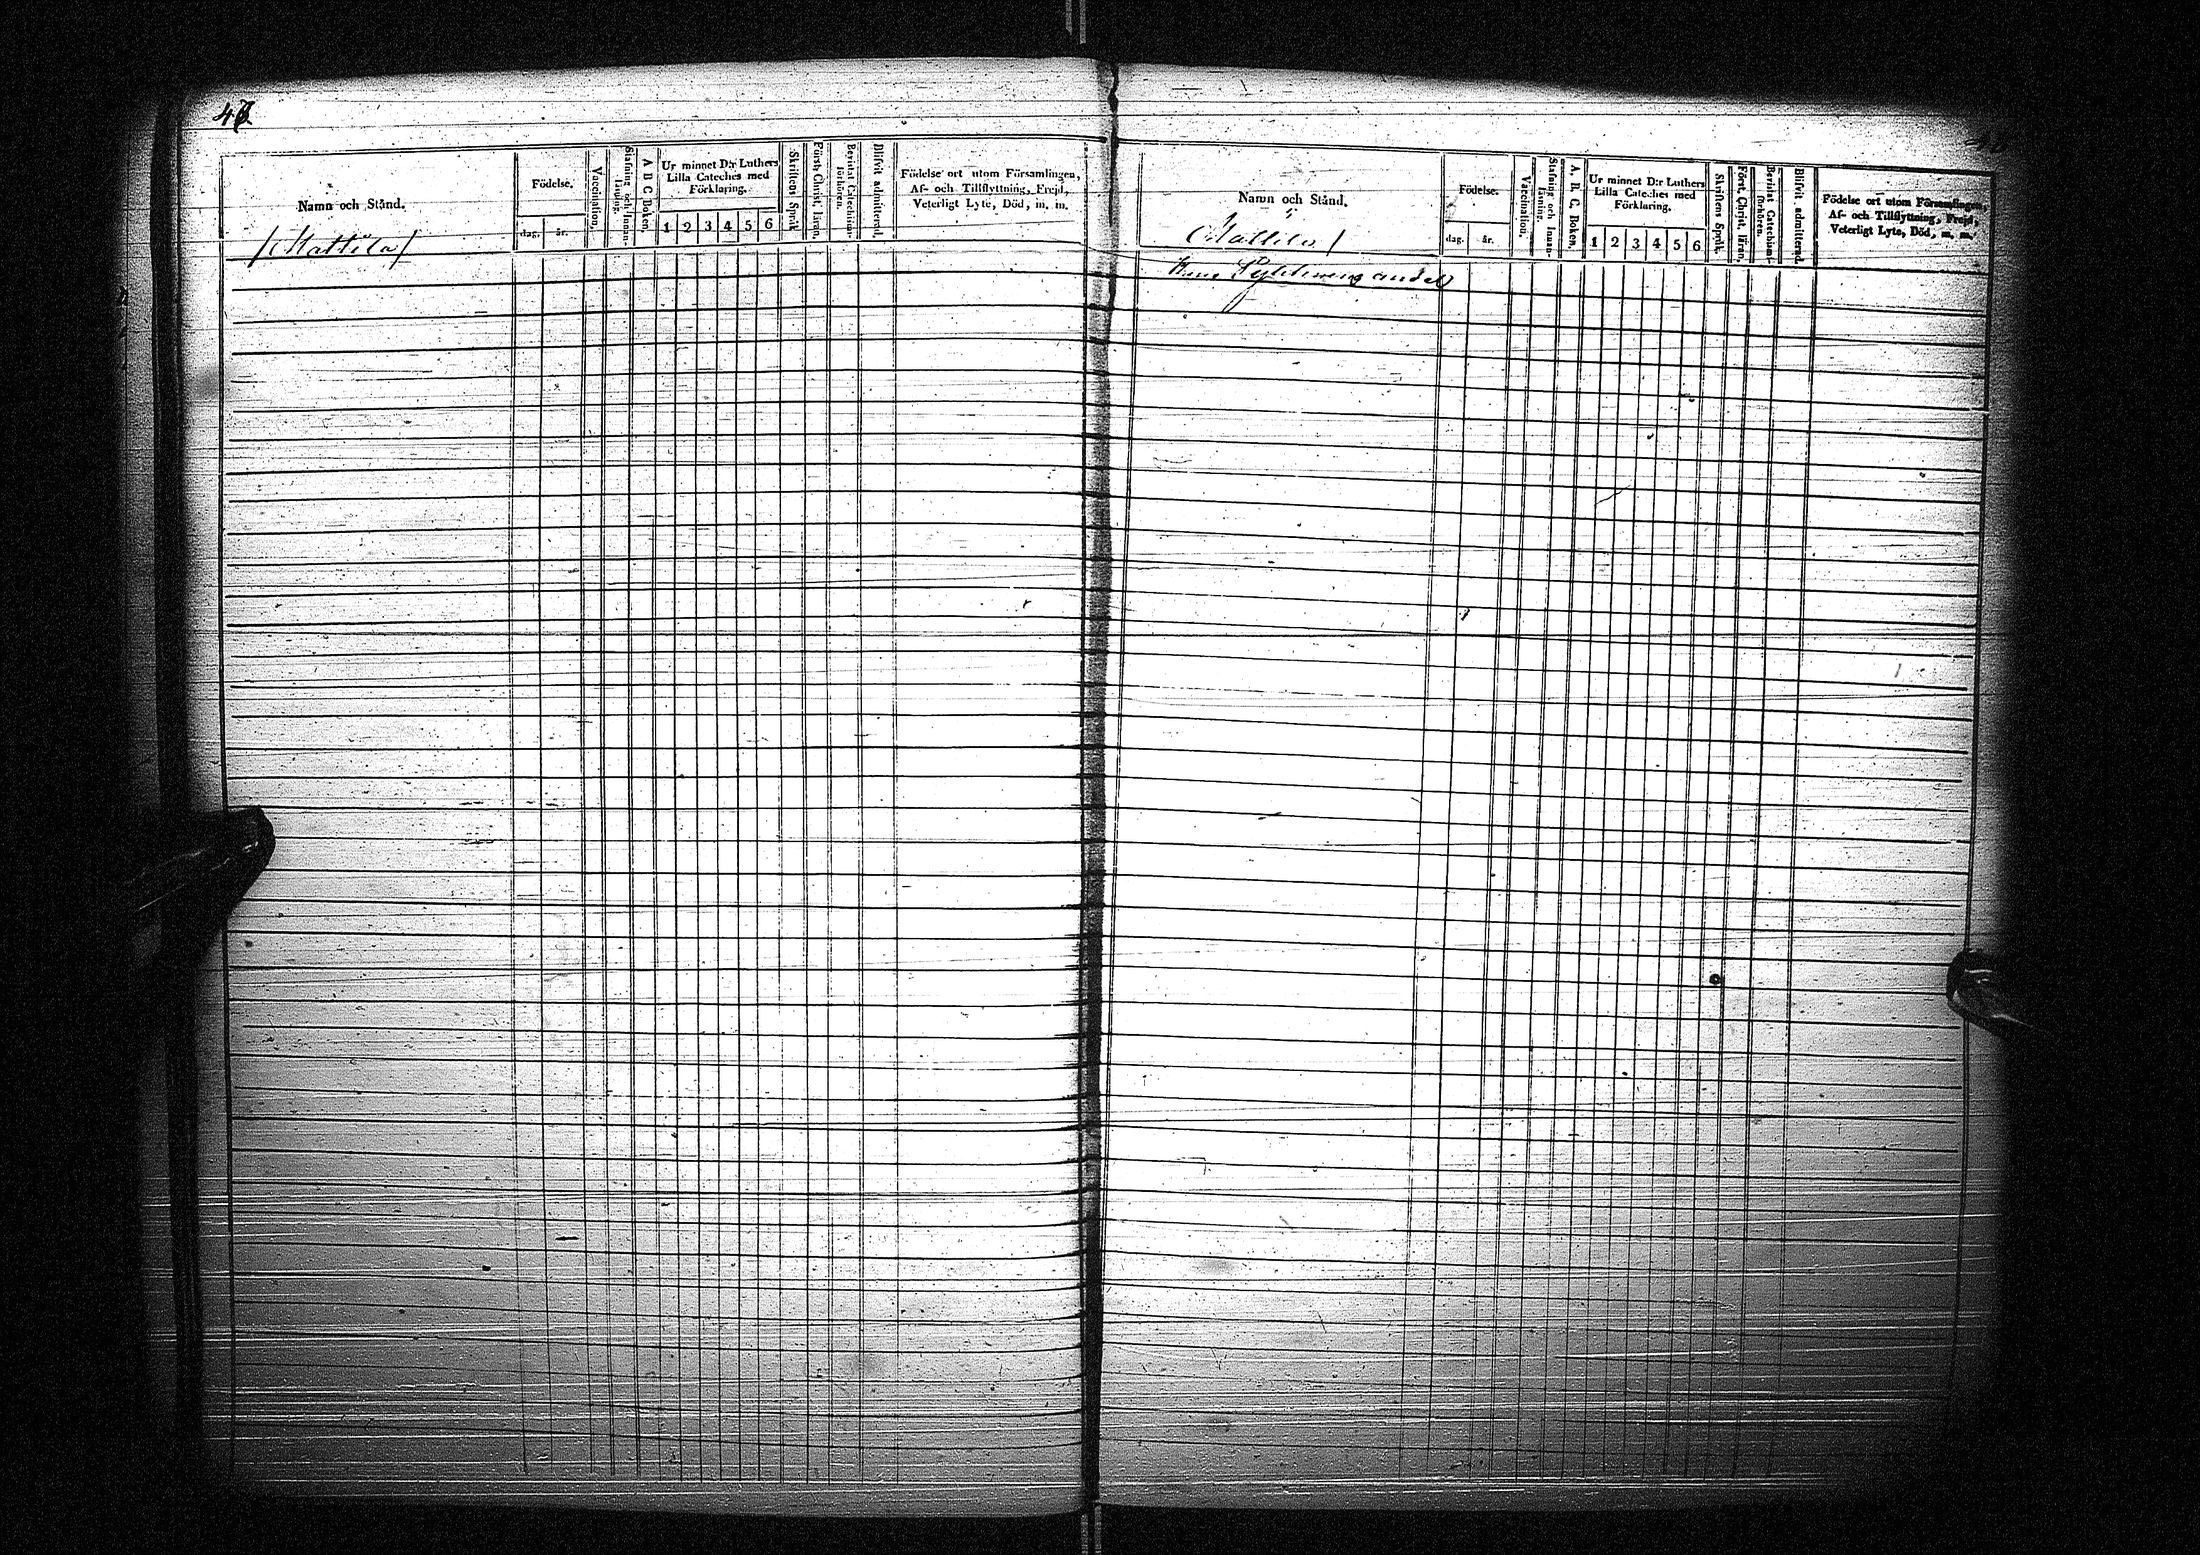 Namn och Stånd.
Födelse.
dag.
år.
Vaccination.
Stafning och Innan-
läsning.
A B C Boken.
Ur minnet D:r Luthers
Lilla Cateches med
Förklaring.
1 2 3 4 5 6
Skriftens Språk
Först. Christ. läran.
Bevistat Catechismi-
förhören.
Blifvit admitterad.
Födelse ort utom Församlingen,
Af- och Tillflyttning, Frejd,
Veterligt Lyte, Död, m. m.
/Mattila/
Namn och Stånd.
Födelse.
dag.
år.
Vaccination.
Stafning och Innan-
läsning.
A. B. C. Boken.
Ur minnet D:r Luthers
Lilla Cateches med
Förklaring.
1 2 3 4 5 6
Skriftens Språk.
Först. Christ. läran.
Bevistat Catechismi-
förhören.
Blifvit admitterad.
Födelse ort utom Församlingen,
Af- och Tillflyttning, Frejd,
Veterligt Lyte, Död, m. m.
Mattila/
andel